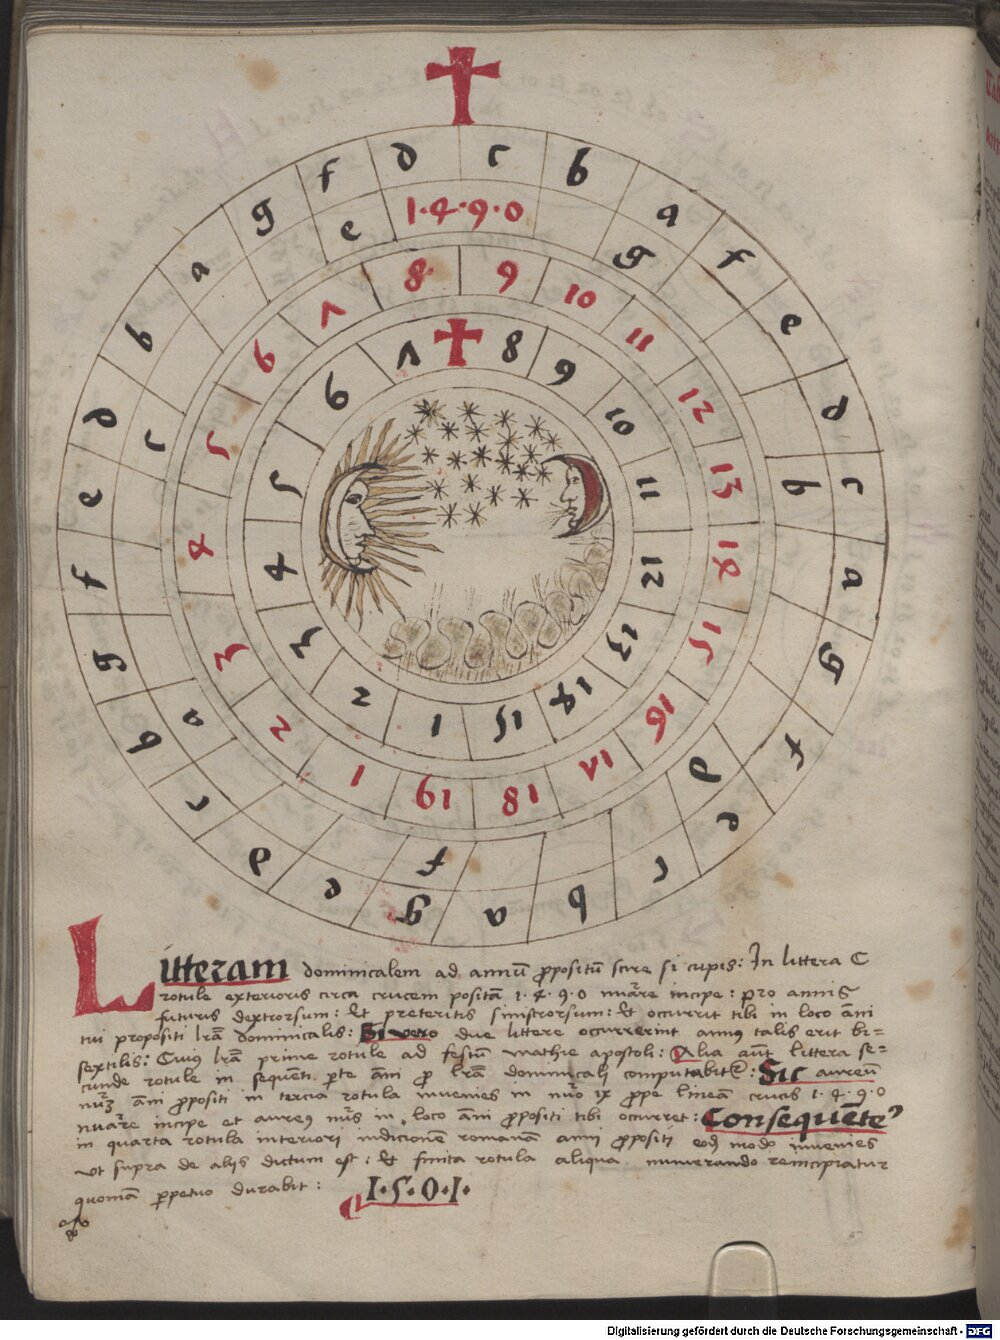 d c b a f e d c a g f e c b a g e d c b g f e d b a g f
1·4·9·0
e g b d f a c
8 9 10 11 12 13 14 15 16 17 18 19 1 2 3 4 5 6 7
8 9 10 11 12 13 14 15 1 2 3 4 5 6 7
Litteram dominicalem ad annū ꝓpositū scire si cupis: In littera C
rotule exterioris circa crucem positā 1·4·9·0 nūare incipe: pro annis
futuris dextrorsum: Et preteritis sinistrorsum: Et occurrit tibi in loco anni
tui propositi lrā dominicalis: Si vero due littere occurrerint annus talis erit bi=
sextilis: Cuius lrā prime rotule ad festū mathie apostoli: Alia aūt littera se=
cunde rotule in sequenti ꝑte anni ꝓ lrā dominicali computabitr: Sic aureū
nūꝝ anni ꝓpositi in tercia rotula invenies in nūo ix ꝓpe lineam crucis 1·4·9·0
nūare incipe et aureus nūs in loco anni ꝓpositi tibi occurret: Consequēte2
in quarta rotula interiori indictionē romanā anni ꝓpositi eodē modo invenies
vt supra de alijs dictum est: Et finita rotula aliqua numerando reincipiatur
quoniā ꝑpetuo durabit: 1·5·0·1·
Digitalisierung gefördert durch die Deutsche Forschungsgemeinschaft - DFG